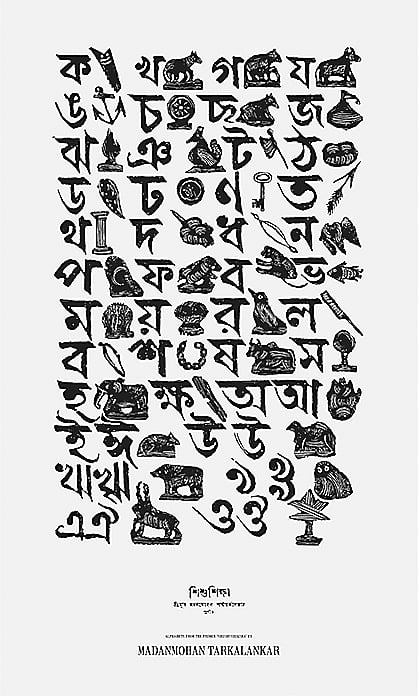 ক খ গ ঘ
ঙ চ ছ জ
ঝ ঞ ট ঠ
ড ঢ ণ ত
থ দ ধ ন
প ফ ব ভ
ম য় র ল
ব শ ষ স
হ ক্ষ অ আ
ই ঈ উ ঊ
ঋ ৠ ঌ ৡ
এ ঐ ও ঔ
শিশুশিক্ষা
ALPHABETS FROM THE PRIMER
MADANMOHAN TARKALANKAR